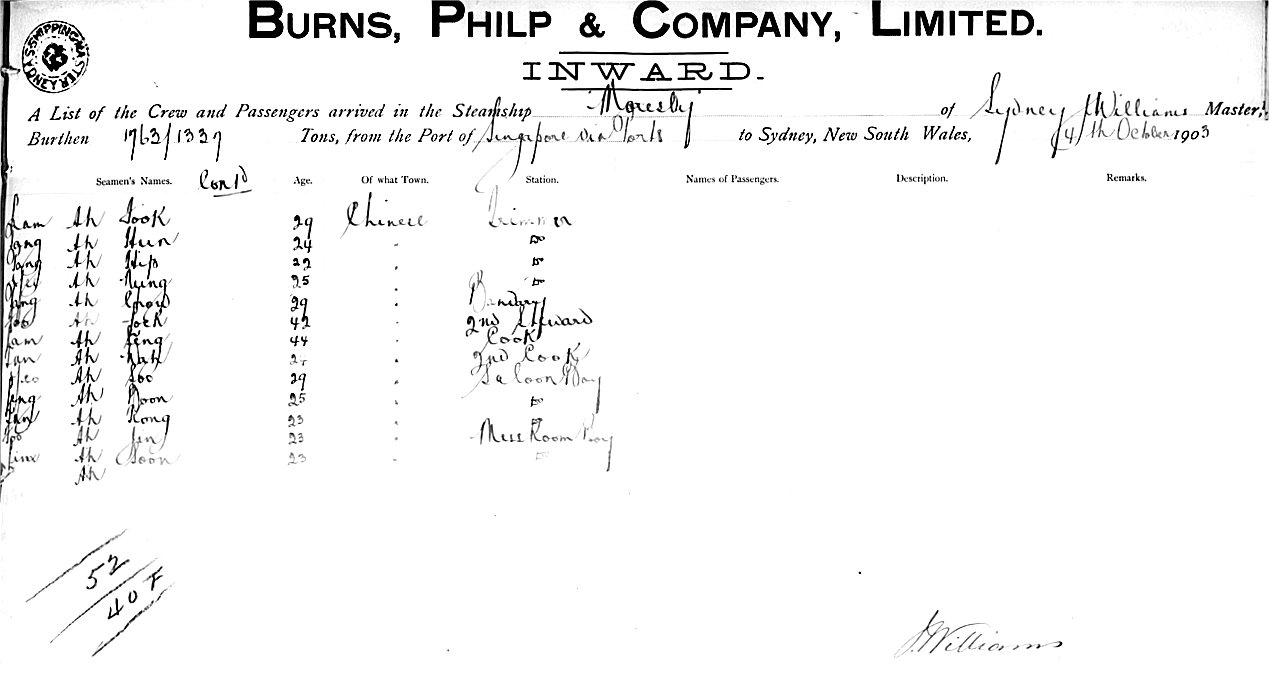 BURNS, PHILP & COMPANY, LIMITED.
INWARD.
A List of the Crew and Passengers arrived in the Steamship Moresby of Sydney J Williams Master,
Burthen 1763/1339 Tons, from the Port of Singapore via Ports to Sydney, New South Wales, 4/th October 1903
Seamen's Names. Con'd Age. Of what Town. Station. Names of Passengers. Description. Remarks.
Lam Ah Sook 29 Chinese Trimmer
Ah Hun 24 " Do
Ah Hip 22 " Do
Ah Kung 25 " Do
Ah 29 " Bandary
Ah 42 " 2nd Steward
Lam Ah 44 " Cook
Ah 2nd Cook
Ah Soo 29 " Saloon Boy
Ah Boon 25 " Do
Ah Kong 23 " Do
Ah Jin 23 " Mess Room Boy
Ah Soon 23 " Do
Ah
52
40 F
J. Williams